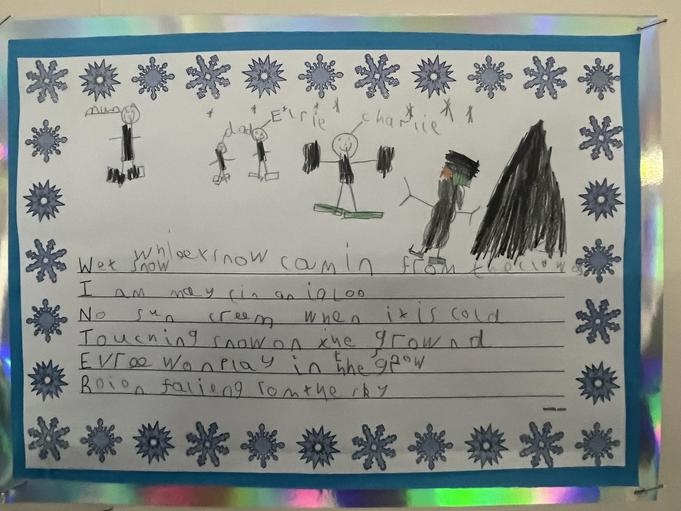 mum
dad
Elrie
charlie
Wet snow whloex snow camin from the clowds
I am maycin an igloo
No sun creem when it is cold
Touching snow on the grownd
EVree won play in the snow
Roion falieng romthe sky